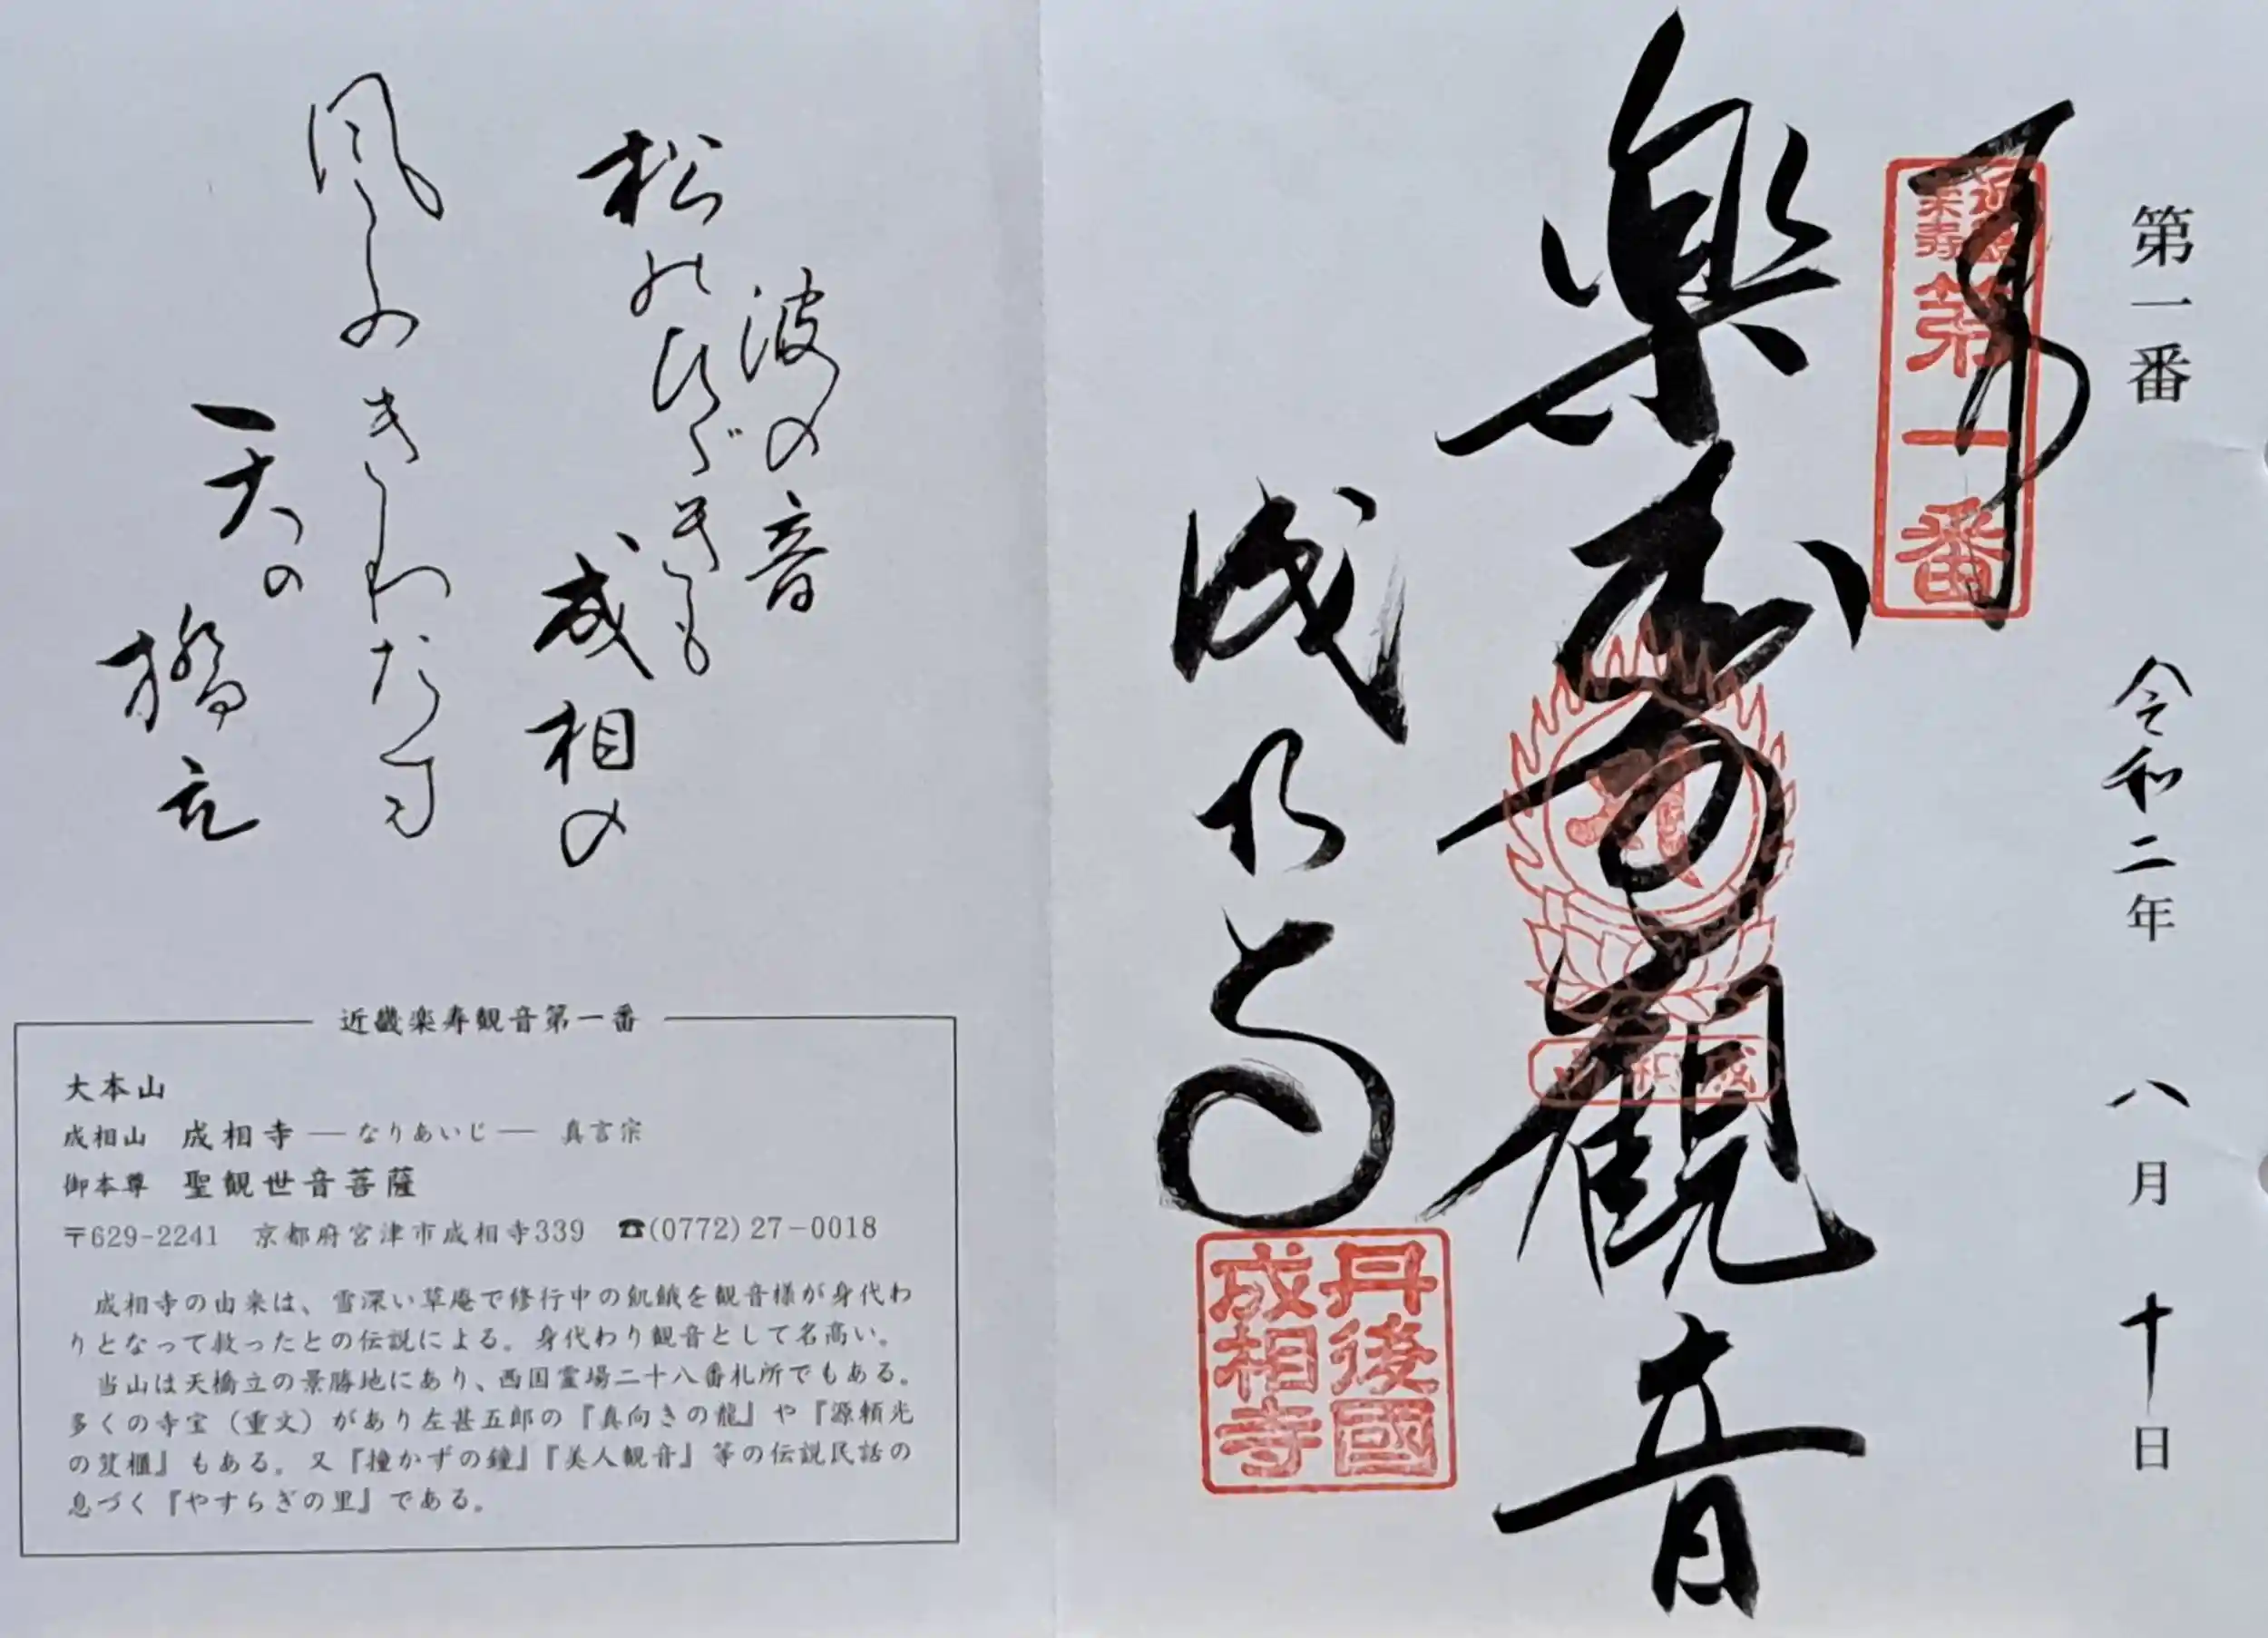 第一番 令和二年 八月 十日
奉拝
近畿
楽寿
第一番
楽寿観音
成相山
成相寺
丹後國
成相寺
波の音
松のひゞきも
成相の
風ふきわたす
天の
橋立
近畿楽寿観音第一番
大本山
成相山 成相寺 ―なりあいじ― 真言宗
御本尊 聖観世音菩薩
〒629-2241 京都府宮津市成相寺339 ☎(0772)27-0018
成相寺の由来は、雪深い草庵で修行中の飢餓を観音様が身代わ
りとなって救ったとの伝説による。身代わり観音として名高い。
当山は天橋立の景勝地にあり、西国霊場二十八番札所でもある。
多くの寺宝（重文）があり左甚五郎の『真向きの龍』や『源頼光
の笈櫃』もある。又『撞かずの鐘』『美人観音』等の伝説民話の
息づく『やすらぎの里』である。